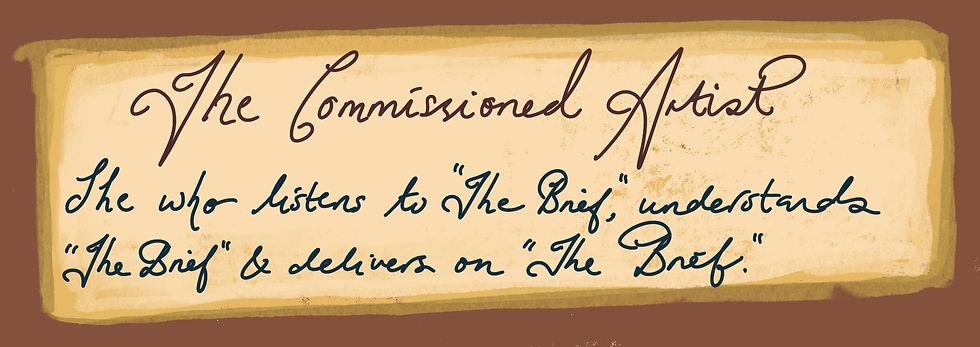 The Commissioned Artist
She who listens to "The Brief," understands
"The Brief" & delivers on "The Brief."